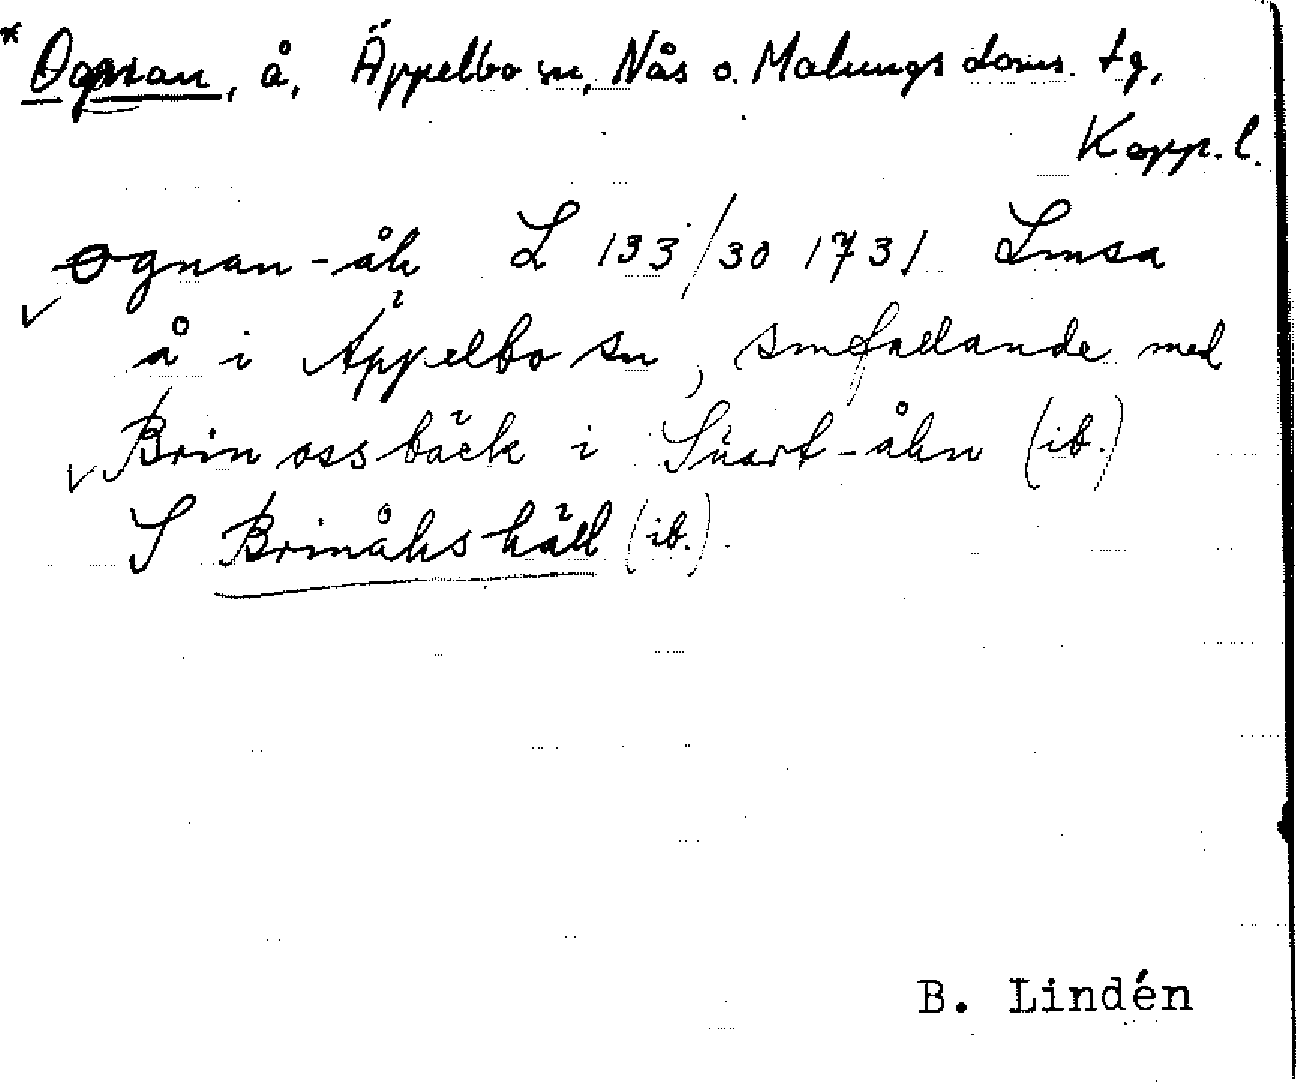 * Ognan, å, Äppelbo sn, Nås o. Malungs doms. tg,
Kopp. l.
ognan-åk L 133/30 1731 Lmsa
å i Äppelbo sn, smfallande med
Brinossbäck i Suart-åhn (ib.)
S Brinåhshäll (ib.).
B. Lindén